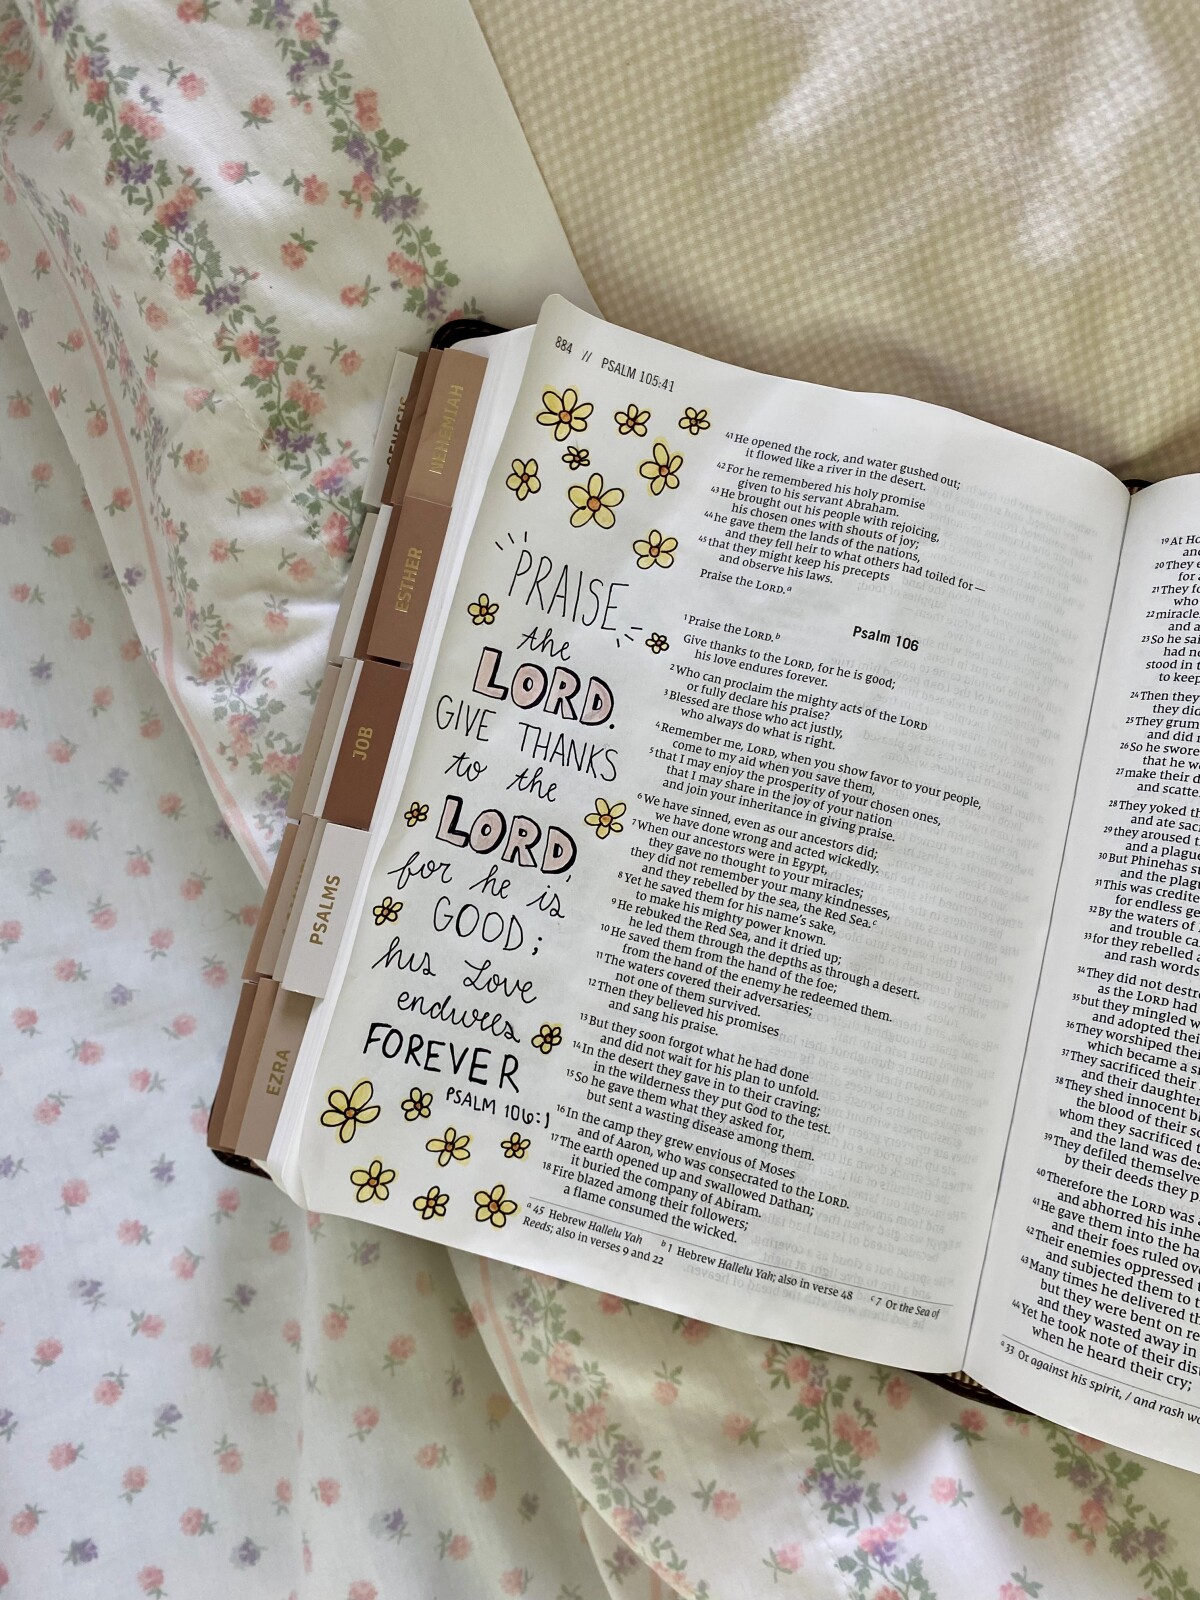 884 // PSALM 105:41
GENESIS
NEHEMIAH
ESTHER
JOB
PSALMS
EZRA
PRAISE
the
LORD.
GIVE THANKS
to the
LORD,
for he is
GOOD;
his Love
endures
FOREVER
PSALM 106:1
41 He opened the rock, and water gushed out;
it flowed like a river in the desert.
42 For he remembered his holy promise
given to his servant Abraham.
43 He brought out his people with rejoicing,
his chosen ones with shouts of joy;
44 he gave them the lands of the nations,
and they fell heir to what others had toiled for—
45 that they might keep his precepts
and observe his laws.
Praise the LORD.a
Psalm 106
1 Praise the LORD.b
Give thanks to the LORD, for he is good;
his love endures forever.
2 Who can proclaim the mighty acts of the LORD
or fully declare his praise?
3 Blessed are those who act justly,
who always do what is right.
4 Remember me, LORD, when you show favor to your people,
come to my aid when you save them,
5 that I may enjoy the prosperity of your chosen ones,
that I may share in the joy of your nation
and join your inheritance in giving praise.
6 We have sinned, even as our ancestors did;
we have done wrong and acted wickedly.
7 When our ancestors were in Egypt,
they gave no thought to your miracles;
they did not remember your many kindnesses,
and they rebelled by the sea, the Red Sea.c
8 Yet he saved them for his name's sake,
to make his mighty power known.
9 He rebuked the Red Sea, and it dried up;
he led them through the depths as through a desert.
10 He saved them from the hand of the foe;
from the hand of the enemy he redeemed them.
11 The waters covered their adversaries;
not one of them survived.
12 Then they believed his promises
and sang his praise.
13 But they soon forgot what he had done
and did not wait for his plan to unfold.
14 In the desert they gave in to their craving;
in the wilderness they put God to the test.
15 So he gave them what they asked for,
but sent a wasting disease among them.
16 In the camp they grew envious of Moses
and of Aaron, who was consecrated to the LORD.
17 The earth opened up and swallowed Dathan;
it buried the company of Abiram.
18 Fire blazed among their followers;
a flame consumed the wicked.
a 45 Hebrew Hallelu Yah b 1 Hebrew Hallelu Yah; also in verse 48 c 7 Or the Sea of
Reeds; also in verses 9 and 22
19 At Ho
and
20 They e
for
21 They fo
who
22 miracle
and a
23 So he sai
had no
stood in t
to keep
24 Then they
they did
25 They grum
and did n
26 So he swore
that he w
27 make their d
and scatte
28 They yoked th
and ate sac
29 they aroused t
and a plagu
30 But Phinehas st
and the plag
31 This was credite
for endless ge
32 By the waters of
and trouble ca
33 for they rebelled a
and rash words
34 They did not destr
as the LORD had
35 but they mingled w
and adopted their
36 They worshiped thei
which became a s
37 They sacrificed their
and their daughter
38 They shed innocent b
the blood of their so
whom they sacrificed t
and the land was des
39 They defiled themselve
by their deeds they p
40 Therefore the LORD was a
and abhorred his inhe
41 He gave them into the ha
and their foes ruled ove
42 Their enemies oppressed t
and subjected them to t
43 Many times he delivered th
but they were bent on re
and they wasted away in
44 Yet he took note of their dist
when he heard their cry;
a 33 Or against his spirit, / and rash wo